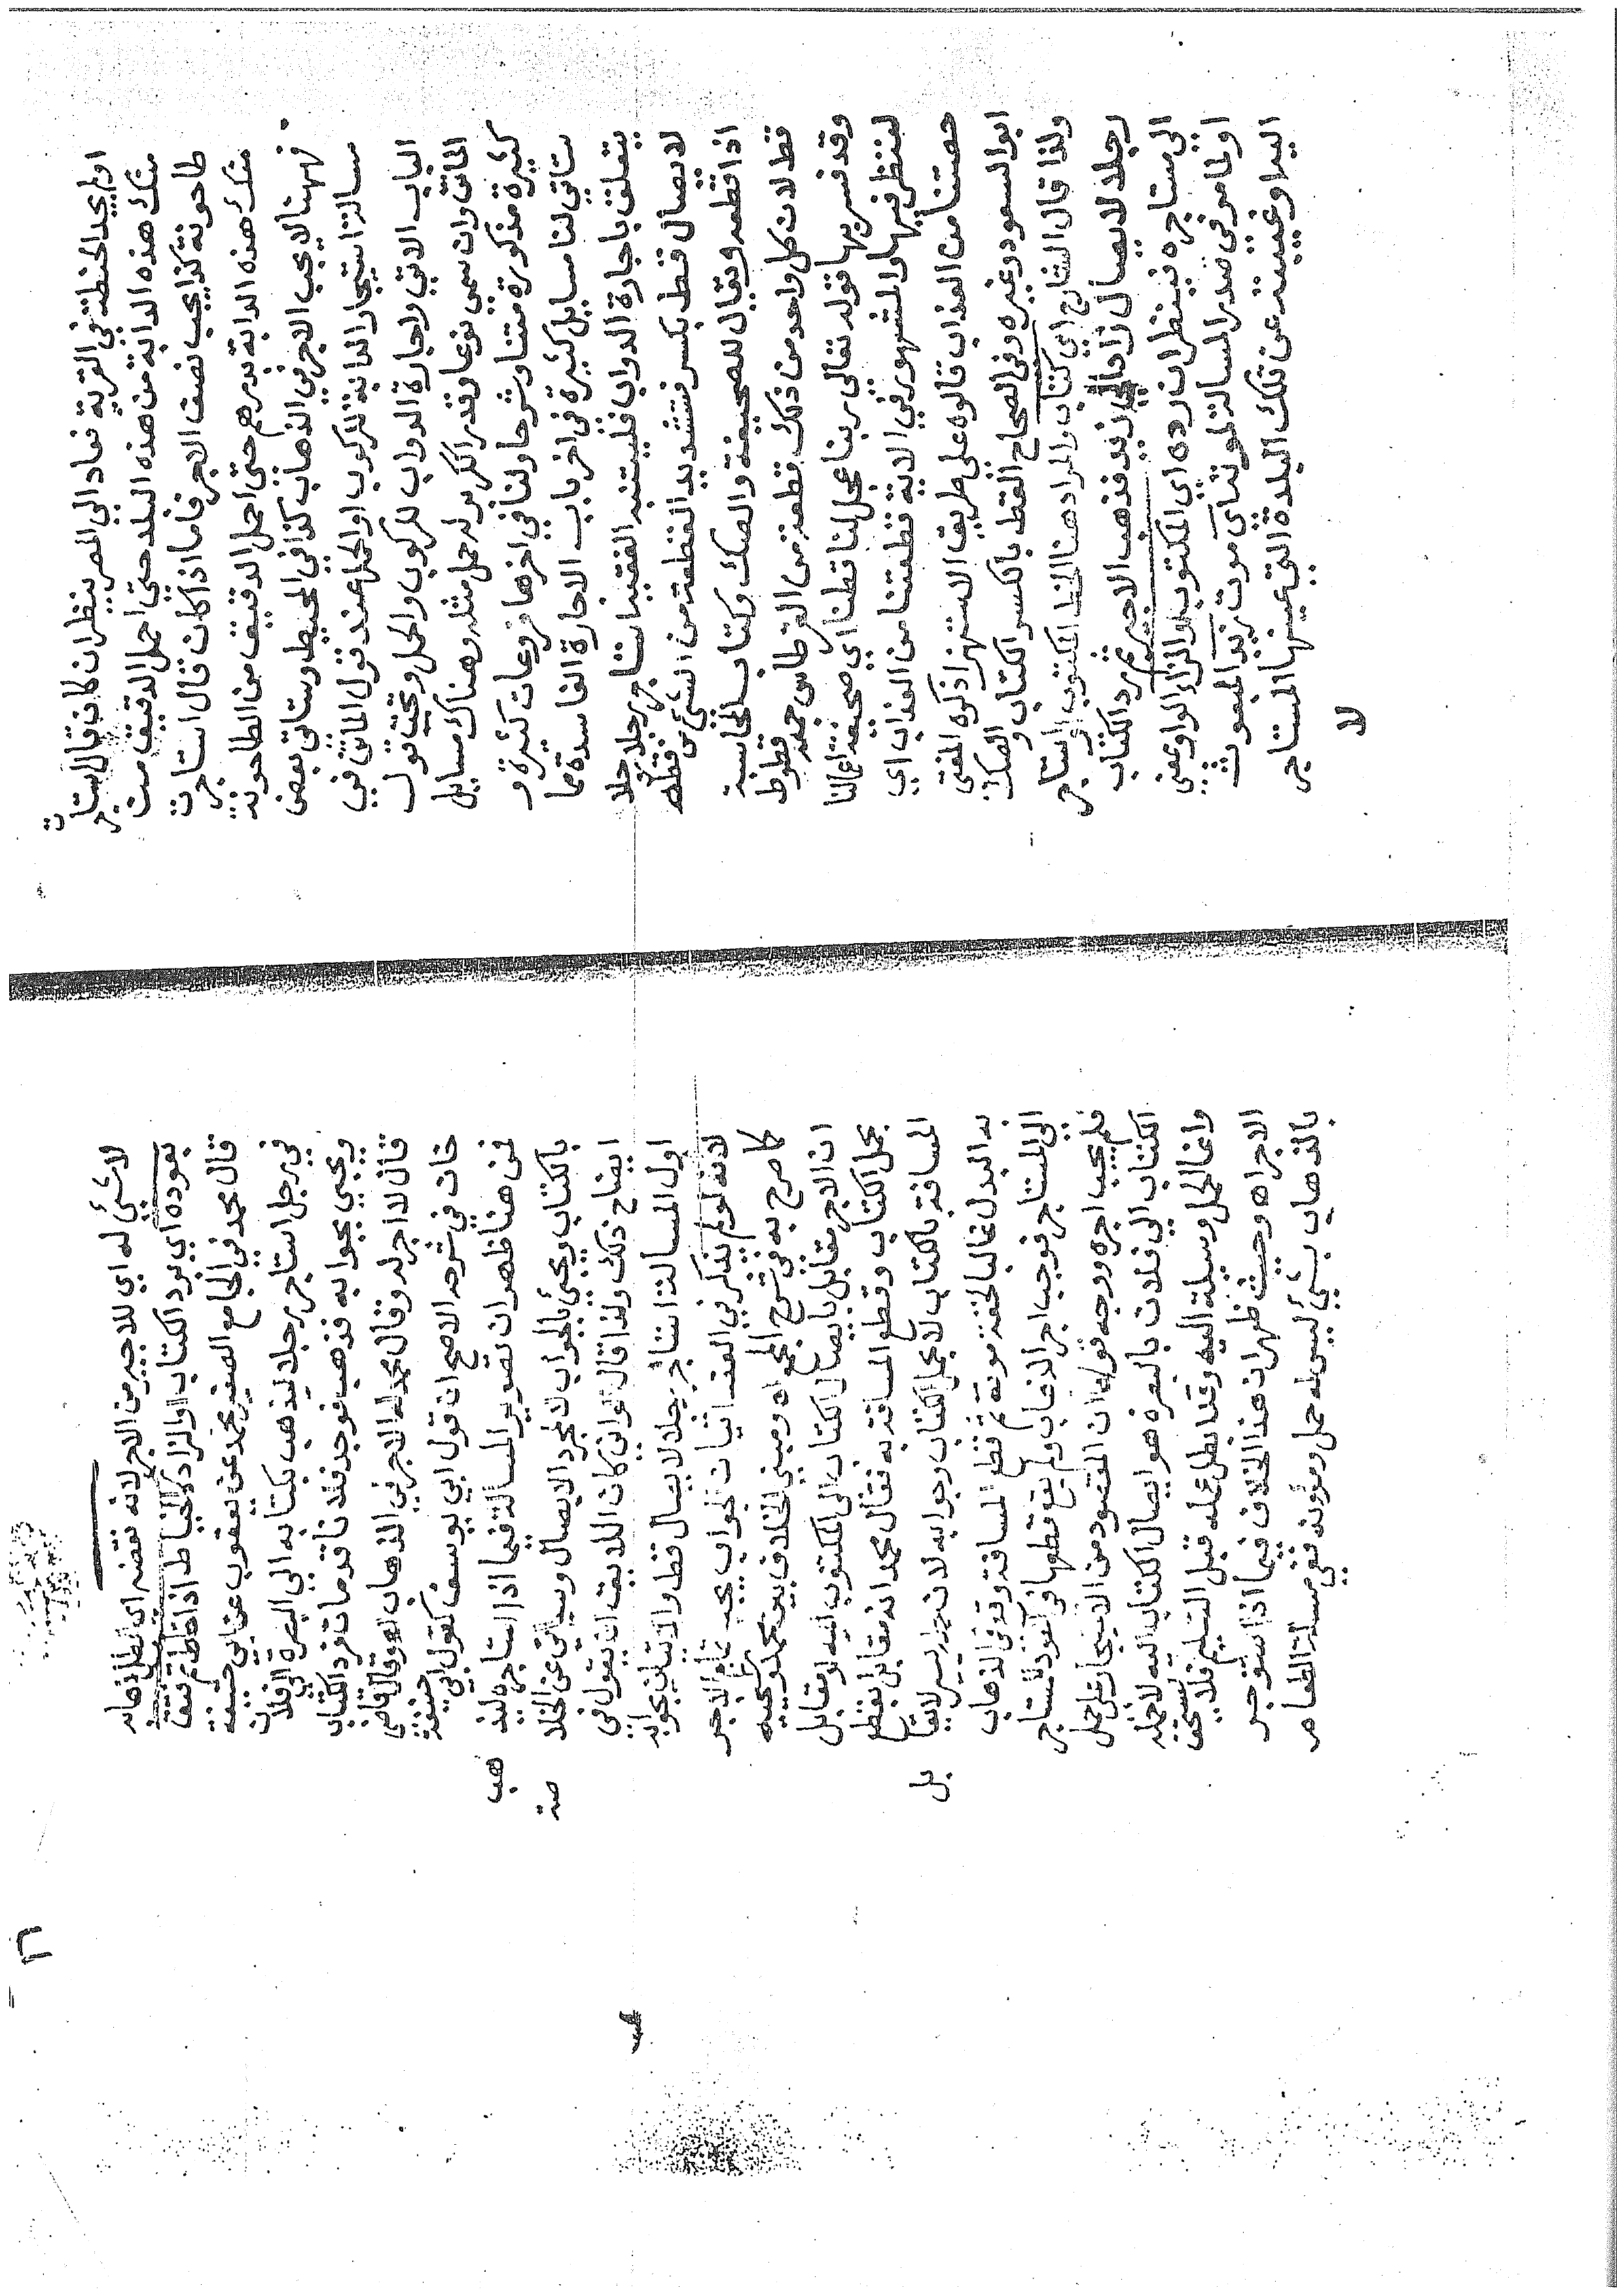 اولم يجد الحنطة في القرية فعاد الي المصر ينظر ان كان قال استاجرت
منك هذه الدابة من هذه البلد حتي احمل الدقيق من
طاحونة كذا يجب نصف الاجر فاما اذا كان قال استاجرت
منك هذه الدابة بدرهم حتى احمل الدقيق من الطاحونة
فههنا لا يجب الاجر في الذهاب كذا في المحيط وستاتي بعض
مسالة استيجار الدابة للركوب او الحمل عند قول الماتن في
الباب الاتي ولاجارة الدواب للركوب والحمل وتحت قول
الماتن وان سمي نوعا وقدرا ككر بر له حمل مثله وهناك مسايل
كثيرة مذكورة متنا وشرحا ولنا في اخرها فروعات كثيرة و
ستاتي لنا مسايل كثيرة في اخر باب الاجارة الفاسدة مما
يتعلق باجارة الدواب فليتنبه الفقيه استاجر رجلا
لايصال قط بكسر فتشديد القطعة من الشي من قطه
اذا قطعه ويقال للصحيفة والصك وكتاب المحاسبة
قط لان كل واحد من ذلك قطعة من القرطاس جمعه قطوط
وقد فسر بها قوله تعالى ربنا عجل لنا قطنا اي صحيفة اعمالنا
لننظر فيها والمشهور في الاية قطعتنا من العذاب اي
حصتنا من العذاب قالوه على طريق الاستهزا ذكره المفتي
ابو السعود وغيره وفي الصحاح القط بالكسر الكتاب والصك
ولذا قال الشارح اي كتاب والمراد هنا الخط المكتوب اي استاجر
رجلا لايصال زاد الي زيد فذهب الاجير ثم رد الكتاب
الي مستاجره فينظر ان رده اي المكتوب او الزاد الواو بمعني
او لما مر في صدر المسالة لموته اي موت زيد المبعوث
اليه او غيبته عن تلك البلدة التي عينها المستاجر
لا
لا شي له اي للاجير من الاجر لانه نقضه اي بطل ذهابه
بعوده اي برد الكتاب او الزاد كالخياط اذا خاط ثم فتق
قال محمد في الجامع الصغير محمد عن يعقوب عن ابي حنيفة
في رجل استاجر رجلا ليذهب بكتابه الي البصرة الي فلان
ويجيي بجوابه فذهب فوجد فلانا قد مات فرد الكتاب
قال لا اجر له وقال محمد له الاجر في الذهاب وقال قاضي
خان في شرحه الاصح ان قول ابي يوسف كقول ابي حنيفة
فمن هنا ظهر ان تصوير المسالة فيما اذا استاجره ليذهب
بالكتاب ويجي بالجواب لا لمجرد الايصال وسياتي عن الخلاصة
ايضاح ذلك ولذا قال الواني كان اللايق ان يقول في
اول المسالة استاجر رجلا لايصال قط والاتيان بجوابه
لانه لو لم يذكر في العقد اتيان الجواب يجب تمام الاجر
كما صرح به في شرح المجمع اه ومبني الخلاف بين محمد وصحبيه
ان الاجر مقابل بايصال الكتاب الى المكتوب اليه او مقابل
بحمل الكتاب وقطع المسافة به فقال محمد انه مقابل بقطع
المسافة بالكتاب لا بحمل الكتاب وجوابه لان حمله يسير لا يقابل
به البدل غالبا لخفة مونة ثم قطع المسافة وقع في الذهاب
الي المستاجر فوجب اجر الذهاب ولم يقع قطعها في العود للمستاجر
فلم يجب اجره ووجه قولهما ان المقصود من الاستيجار علي حمل
الكتاب الي فلان بالبصرة هو ايصال الكتاب اليه لا حمله
وانما الحمل وسيلة اليه وقد بطل عمله قبل التسليم فلا يستحق
الاجر اه وحيث ظهر ان هذا الخلاف فيما اذا استوجر
بالذهاب بشي ليس له حمل ومؤونة ففي مسالة الطعام